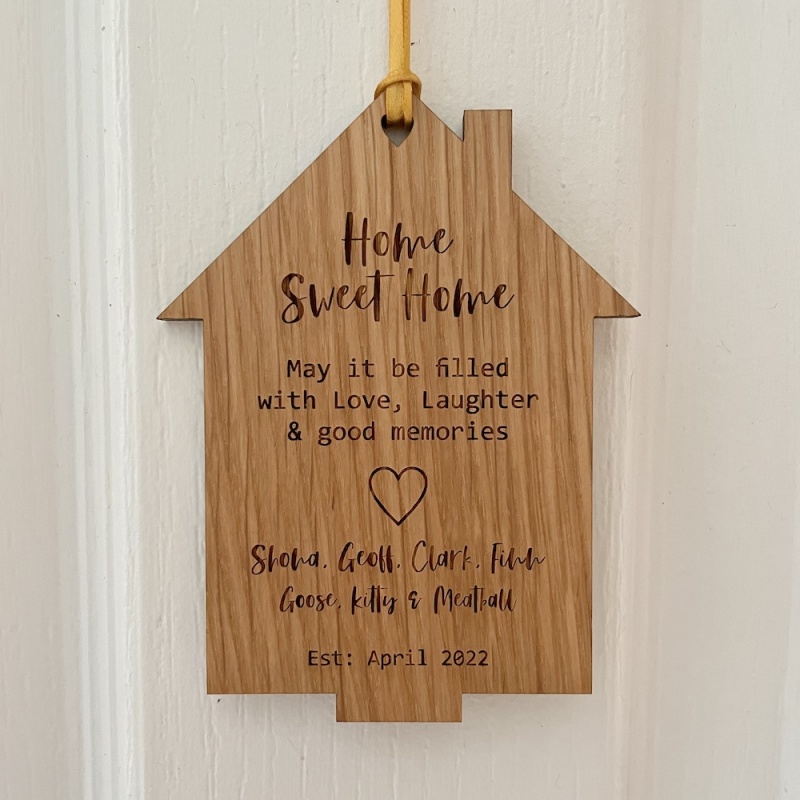 Home
Sweet Home
May it be filled
with Love, Laughter
& good memories
Shona, Geoff, Clark, Finn
Goose, Kitty & Meatball
Est: April 2022